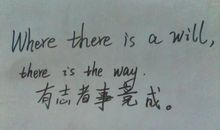 Where there is a will,
there is the way.
有志者事竟成。